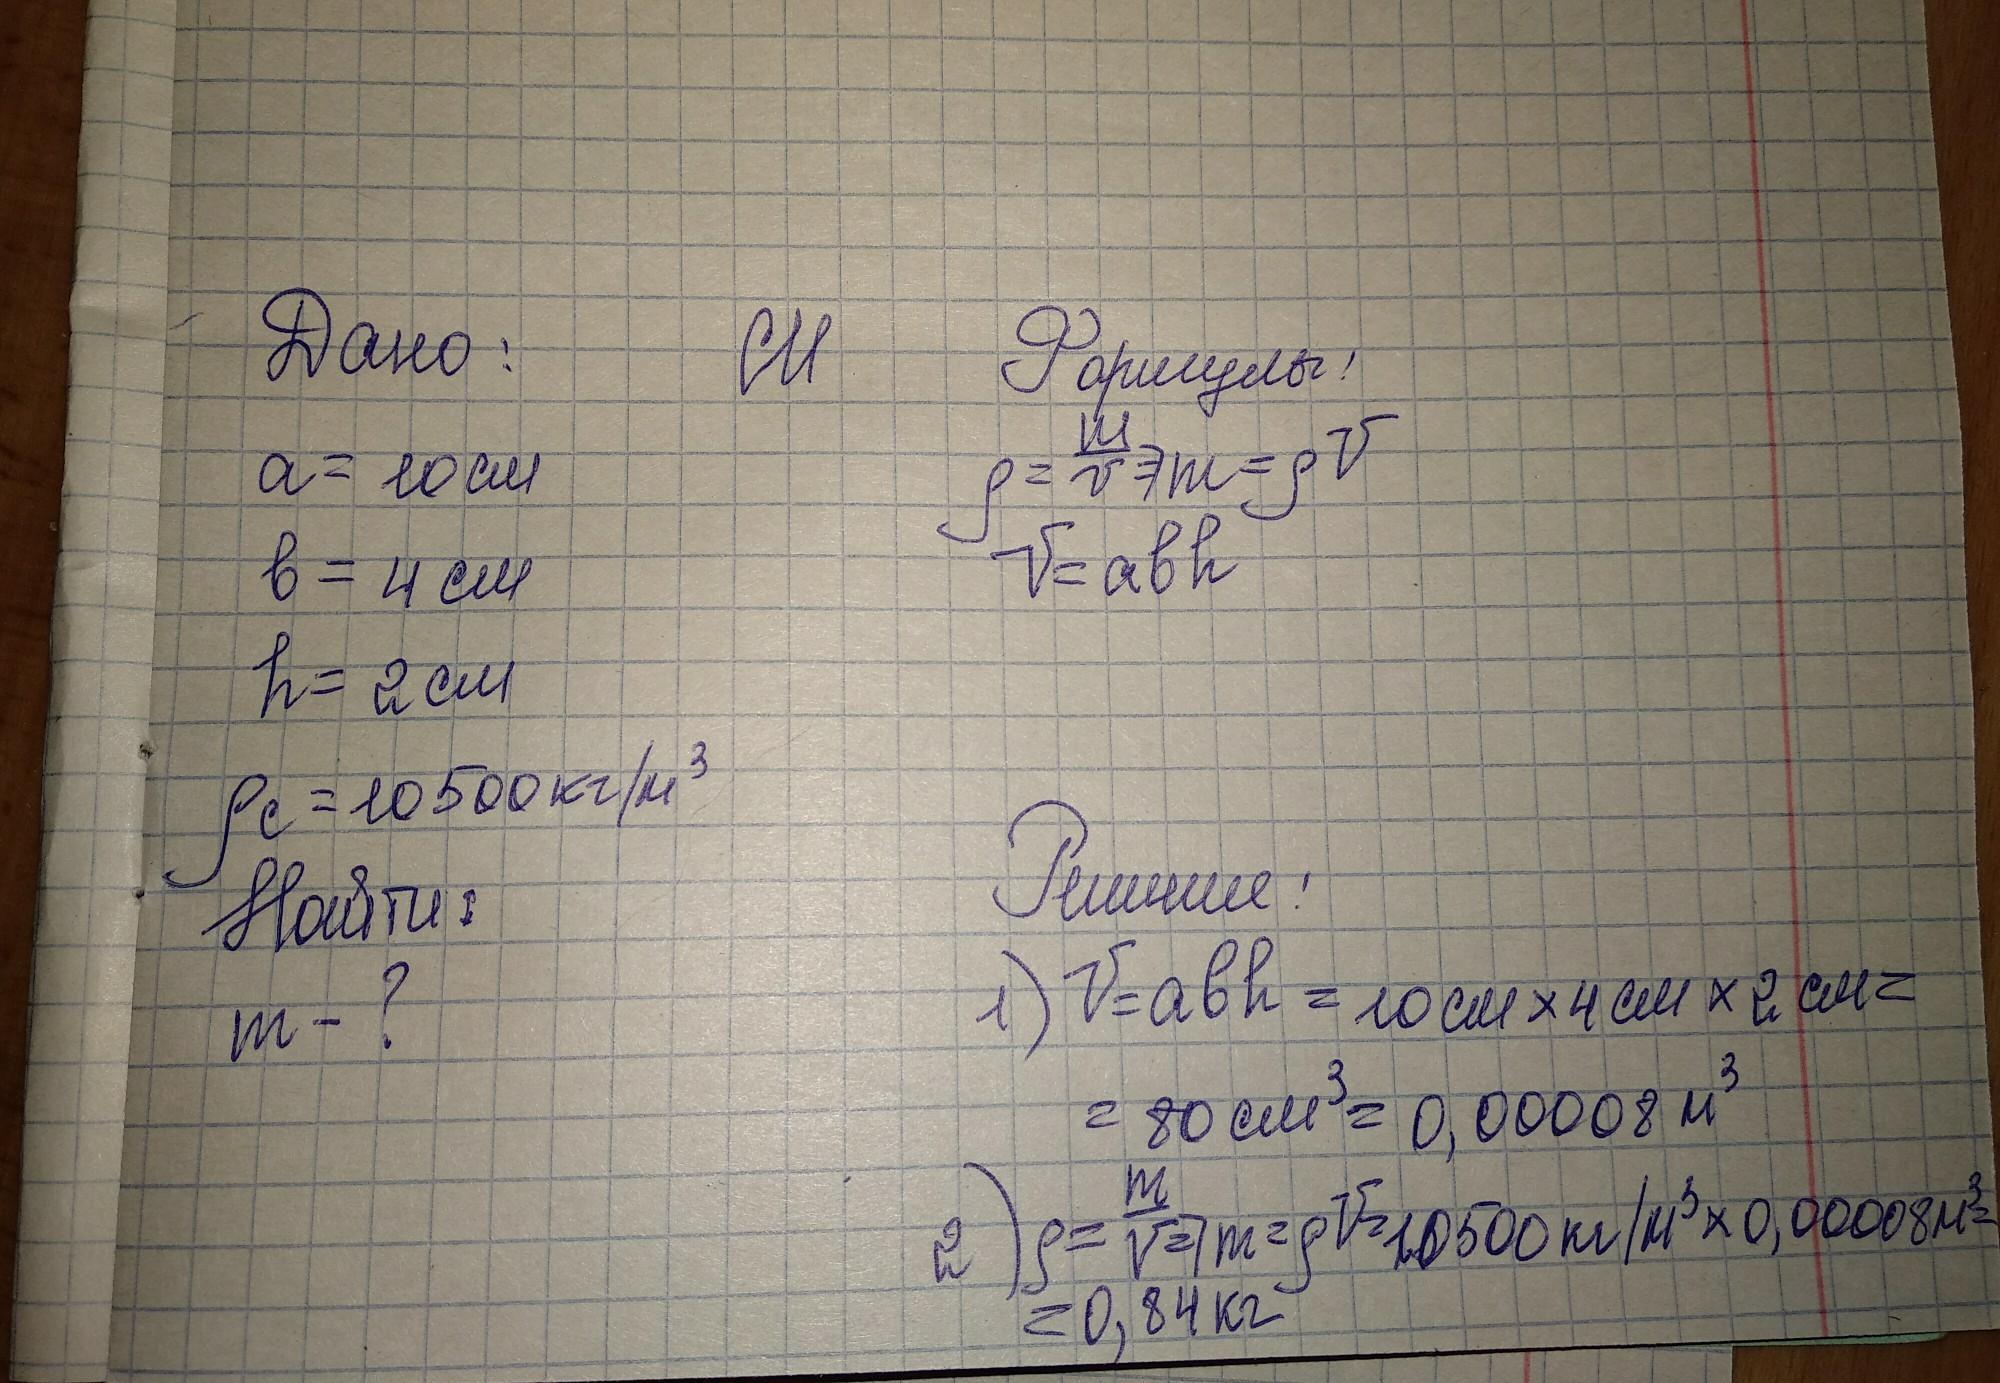 Дано:
a = 10 см
в = 4 см
h = 2 см
ρс = 10500 кг/м³
Найти:
m - ?
СИ
Формулы:
ρ = m/V => m = ρV
V = aвh
Решение:
1) V = aвh = 10 см × 4 см × 2 см =
= 80 см³ = 0,00008 м³
2) ρ = m/V => m = ρV = 10500 кг/м³ × 0,00008 м³ =
= 0,84 кг